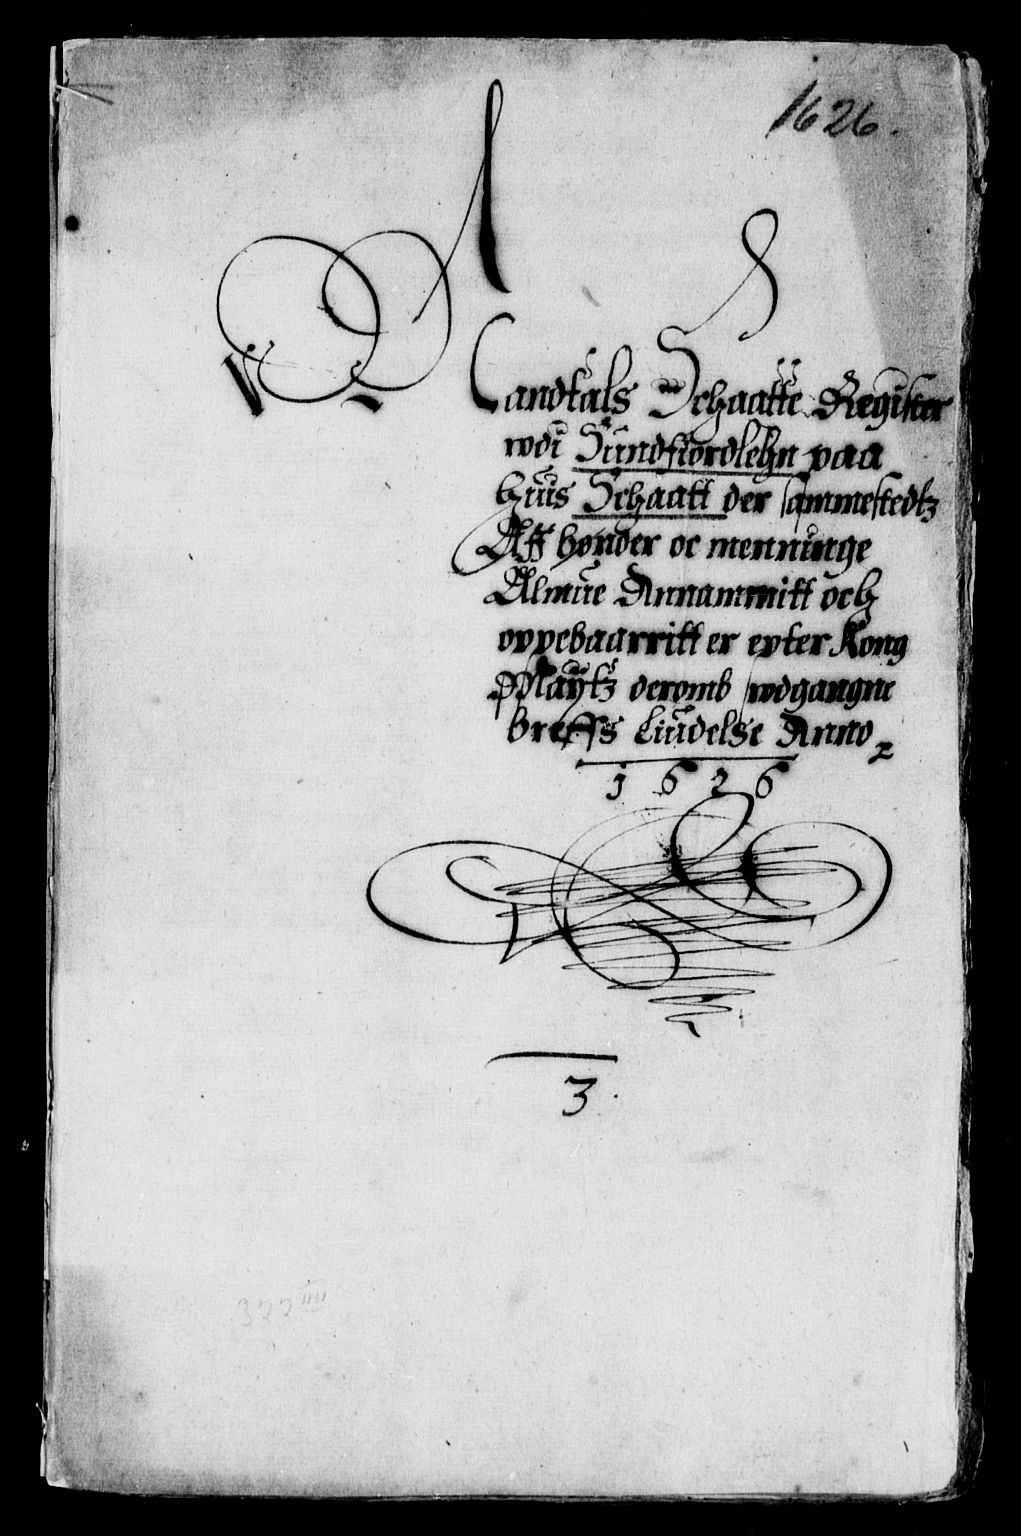 1626.
Mandtals Schaatte Register
wdi Sundfiordlehn paa
huus Schaatt der sammestedtz
Aff bønder oc menninge
Almue Annammitt och
oppebaarritt er epter Kong
Maÿtz deromb wdgangne
breffs Liudelse Anno
1626
3.
322